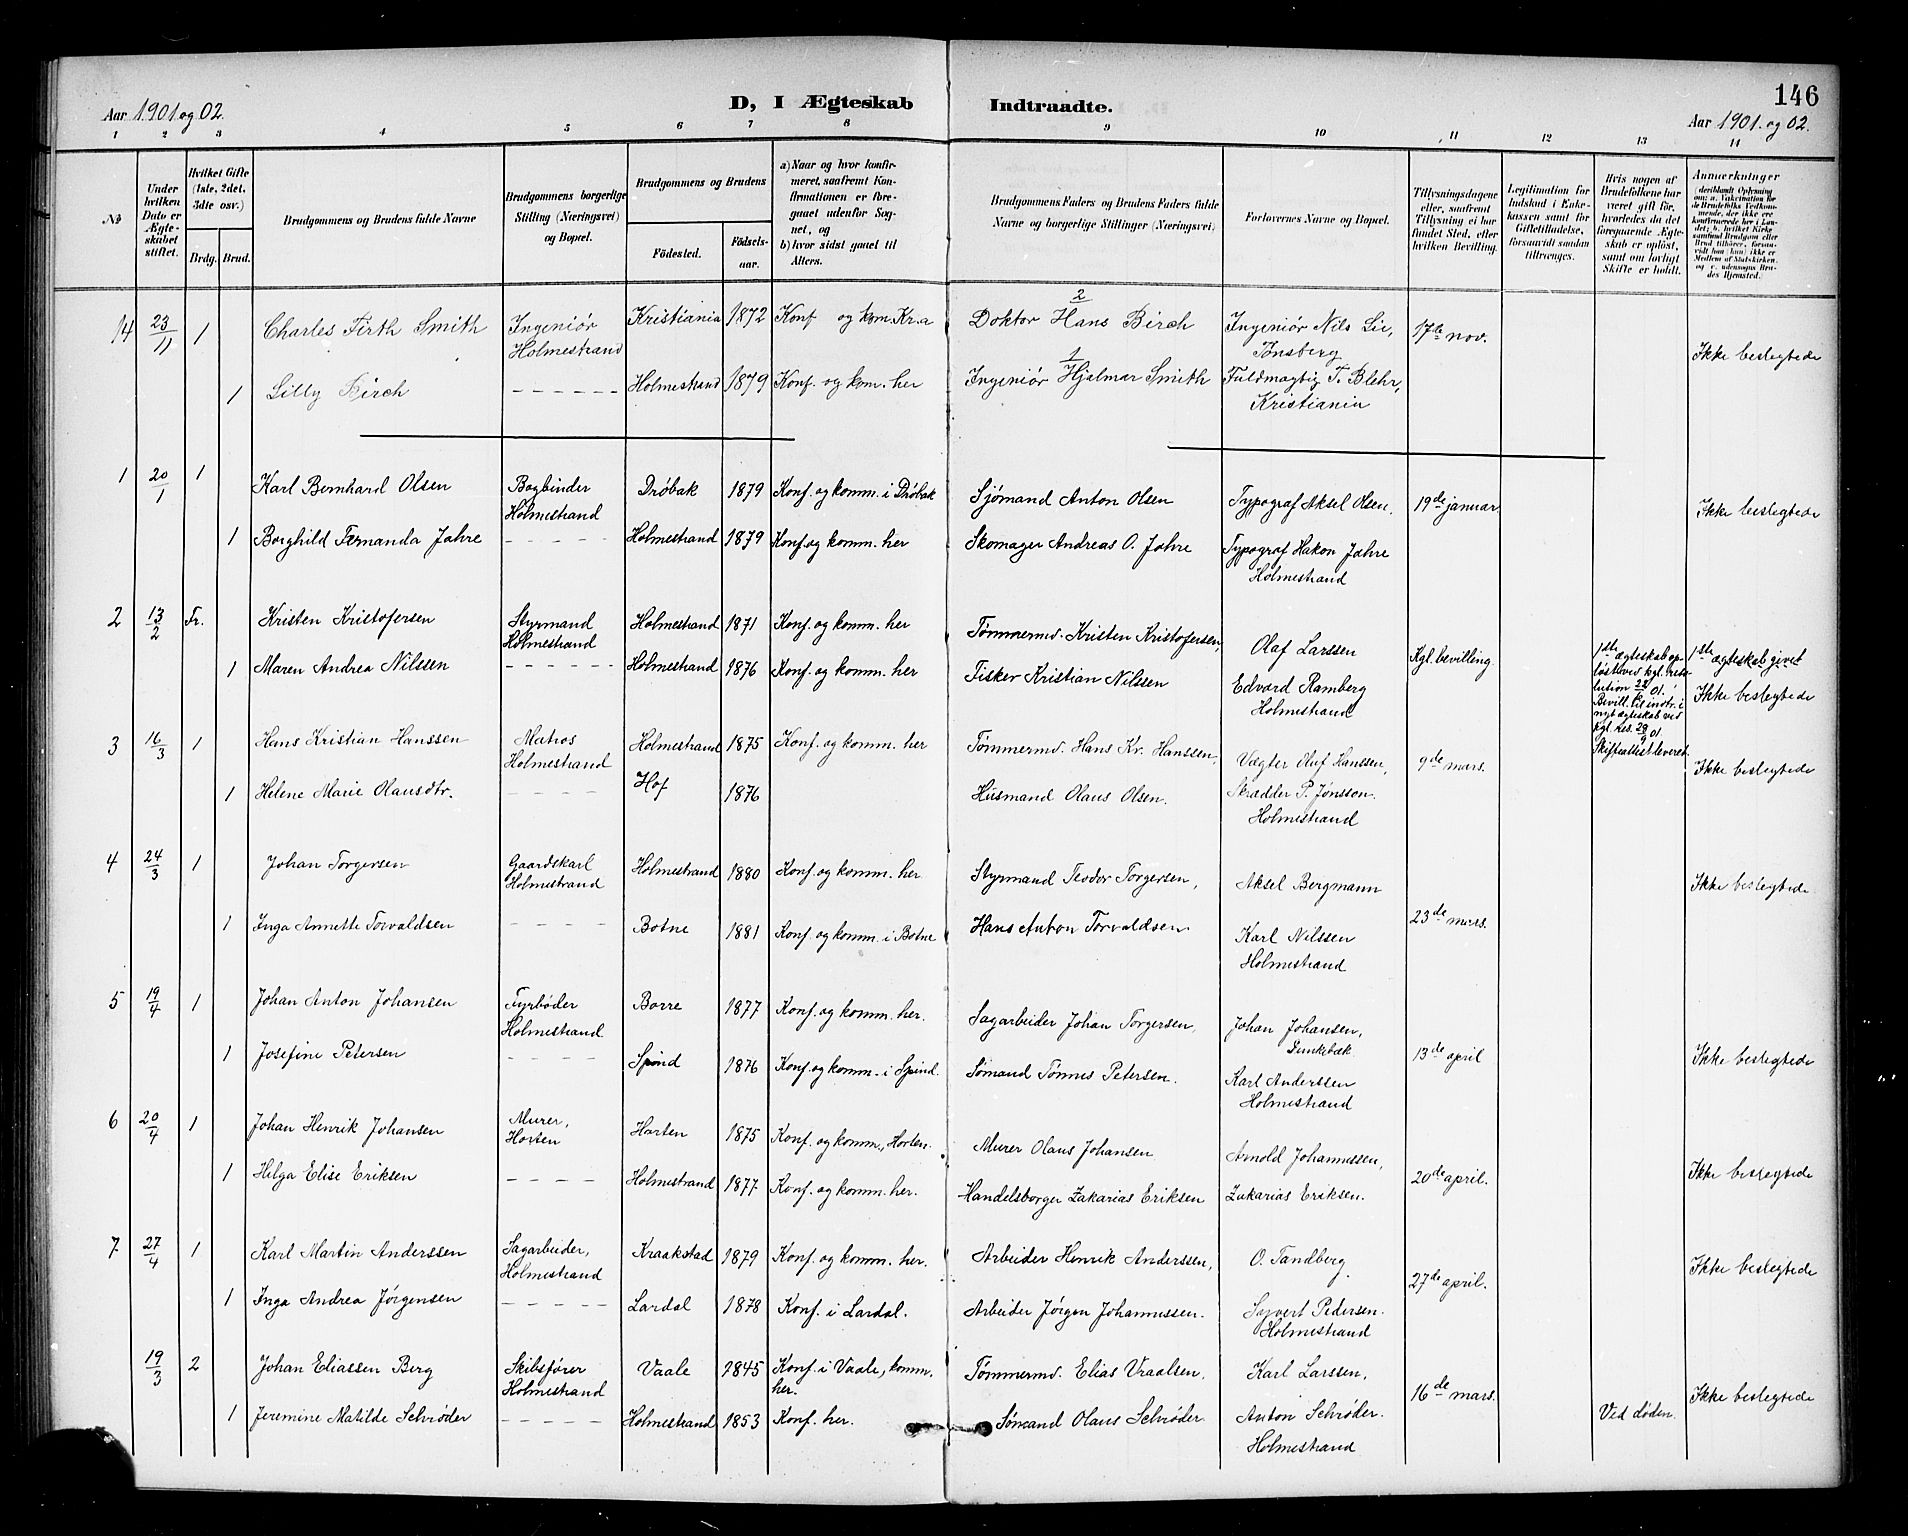 146
Aar 1901 og 02.
D, I Ægteskab Indtraadte.
Aar 1901. og 02.
1 2 3 4 5 6 7 8 9 10 11 12 13 14
No
Under hvilken Dato er Ægteskabet stiftet.
Hvilket Gifte (1ste, 2det, 3dte osv.)
Brdg. Brud.
Brudgommens og Brudens fulde Navne
Brudgommens borgerlige Stilling (Næringsvei) og Bopæl.
Brudgommens og Brudens
Fødested. Fødselsaar.
a) Naar og hvor konfirmeret, saafremt Konfirmationen er foregaaet udenfor Sognet, og
b) hvor sidst gaaet til Alters.
Brudgommens Faders og Brudens Faders fulde Navne og borgerlige Stillinger (Næringsvei)
Forlovernes Navne og Bopæl.
Tillysningsdagene eller, saafremt Tillysning ei har fundet Sted, efter hvilken Bevilling.
Legitimation for Indskud i Enkekassen samt for Giftetilladelse, forsaavidt saadan tiltrænges.
Hvis nogen af Brudefolkene har været gift før, hvorledes da det foregaaende Ægteskab er opløst, samt om lovligt Skifte er holdt.
Anmærkninger
(deriblandt Oplysning om: a. Vakcination for de Brudefolks Vedkommende, der ikke ere konfirmerede her i Landet; b. hvilket Kirkesamfund Brudgom eller Brud tilhører, forsaavidt han (hun) ikke er Medlem af Statskirken, og c. udensogns Brudes Hjemsted.)
14 23/11 1 Charles Firth Smith Ingeniør Holmestrand Kristiania 1872 Konf og kom. Kr.a 2 Doktor Hans Birch Ingeniør Nils Lie, Tønsberg 17de nov. Ikke beslegtede
1 Lilly Birch – – – – – – Holmestrand 1879 Konf. og kom. her 1 Ingeniør Hjalmar Smith Fuldmægtig T. Blehr, Kristiania
1 20/1 1 Karl Bernhard Olsen Bogbinder Holmestrand Drøbak 1879 Konf. og komm. i Drøbak Sjömand Anton Olsen Typograf Aksel Olsen. 19de januar Ikke beslegtede
1 Borghild Fernanda Jahre – – – – – Holmestrand 1879 Konf. og komm. her Skomager Andreas O. Jahre Typograf Hakon Jahre Holmestrand
2 13/2 Fr. Kristen Kristofersen Styrmand Holmestrand Holmestrand 1871 Konf. og komm. her Tømmermd. Kristen Kristofersen, Olaf Larssen Kgl. bevilling. 1ste ægteskab opløst ved kgl. resolution 22/6 01. Bevill. til indtr. i nyt ægteskab ved kgl. res. 29/9 01. Skifteattest leveret. 1ste ægteskab givet Ikke beslegtede
1 Maren Andrea Nilssen – – – – – Holmestrand 1876 Konf. og komm. her Fisker Kristian Nilssen Edvard Ramberg Holmestrand
3 16/3 1 Hans Kristian Hanssen Matros Holmestrand Holmestrand 1875 Konf. og komm. her Tømmermd. Hans Kr. Hanssen, Vægter Oluf Hanssen, 9de mars. Ikke beslegtede
1 Helene Marie Olausdtr. – – – – Hof 1876 Husmand Olaus Olsen. Skrædder P. Jønsson. Holmestrand
4 24/3 1 Johan Torgersen Gaardskarl Holmestrand Holmestrand 1880 Konf. og komm. her Styrmand Teodor Torgersen, Aksel Bergmann 23de mars. Ikke beslegtede
1 Inga Annette Torvaldsen – – – – Botne 1881 Konf. og komm. i Botne Hans Anton Torvaldsen Karl Nilssen Holmestrand
5 19/4 1 Johan Anton Johansen Fyrbøder Holmestrand Borre 1877 Konf. og komm. her. Sagarbeider Johan Torgersen, Johan Johansen, 13de april Ikke beslegtede
1 Josefine Petersen – – – – Spind 1876 Konf. og komm. i Spind. Sømand Tønnes Petersen. Karl Anderssen Holmestrand
6 20/4 1 Johan Henrik Johansen Murer, Horten Horten 1875 Konf. og komm., Horten. Murer Olaus Johansen Arnold Johannessen, 20de april. Ikke beslegtede
1 Helga Elise Eriksen – – – – Holmestrand 1877 Konf. og komm. her. Handelsborger Zakarias Eriksen Zakarias Eriksen.
7 27/4 1 Karl Martin Anderssen Sagarbeider, Holmestrand Kraakstad 1879 Konf. og komm. her. Arbeider Henrik Anderssen, O. Tandberg 27de april. Ikke beslegtede
1 Inga Andrea Jørgensen – – – – – Lardal 1878 Konf. i Lardal. Arbeider Jørgen Johannessen. Syvert Pedersen. Holmestrand
19/3 2 Johan Eliassen Berg Skibsfører Holmestrand Vaale 1845 Konf. i Vaale, komm. her. Tømmermd. Elias Vraalsen, Karl Larssen, 16de mars. Ikke beslegtede
1 Jeremine Matilde Schrøder – – – – – Holmestrand 1853 Konf. her. Sømand Olaus Schrøder Anton Schrøder. Holmestrand Ved døden.